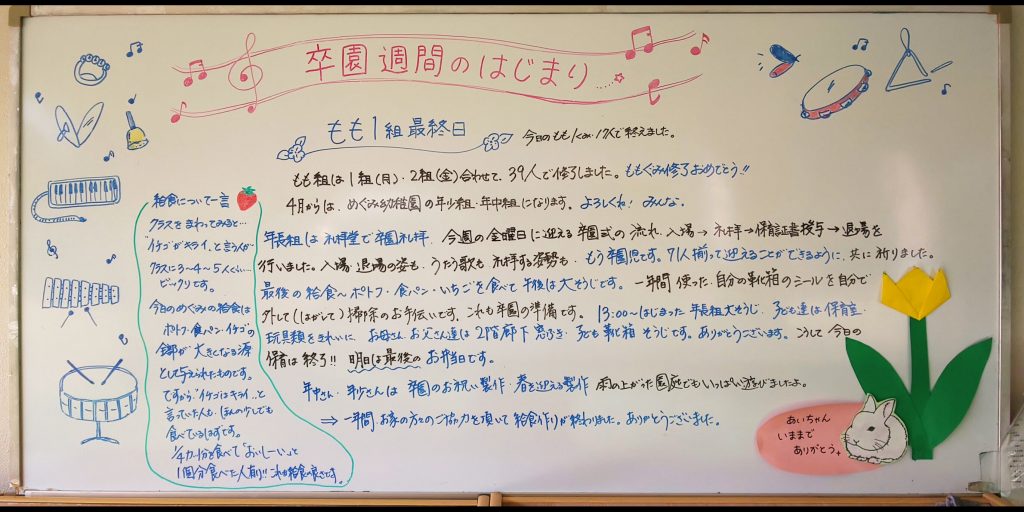 卒園週間のはじまり…
もも1組最終日
今日のもも1くみは17人で終えました。
もも組は1組(月)・2組(金)合わせて、39人で修了しました。ももぐみ修了おめでとう!!
4月からは、めぐみ幼稚園の年少組・年中組になります。よろしくね! みんな。
年長組は礼拝堂で卒園礼拝。今週の金曜日に迎える卒園式の流れ、入場→礼拝→保育証書授与→退場を
行いました。入場・退場の姿も、うたう歌も、礼拝する姿勢も、もう卒園児です。71人揃って迎えることができるように、共に祈りました。
最後の給食〜ポトフ・食パン・いちごを食べて午後は大そうじです。一年間使った自分の靴箱のシールを自分で
外して(はがして)掃除のお手伝いです。これも卒園の準備です。13:00〜はじまった年長組大そうじ、子ども達は保育室・
玩具類をきれいに、お母さん、お父さん達は2階廊下、窓ふき・子ども靴箱そうじです。ありがとうございます。こうして今日の
保育は終了!! 明日は最後のお弁当です。
年中さん・年少さんは卒園のお祝い製作・春を迎える製作、雨の上がった園庭でもいっぱい遊びましたよ。
⇒一年間お家の方々のご協力を頂いて給食作りが終わりました。ありがとうございました。
給食について一言
クラスをまわってみると…
イチゴがキライ、と言う人が
クラスに3〜4〜5人くらい…
ビックリです。
今日のめぐみの給食は
ポトフ・食パン・イチゴの
全部が大きくなる源
として与えられたものです。
ですから"イチゴはキライ"と
言っていた人も、ほんの少しでも
食べているはずです。
1/4カット分を食べて「おいしーい」って
1個分食べた人有り!! これが給食の良さです。
あいちゃん
いままで
ありがとう。